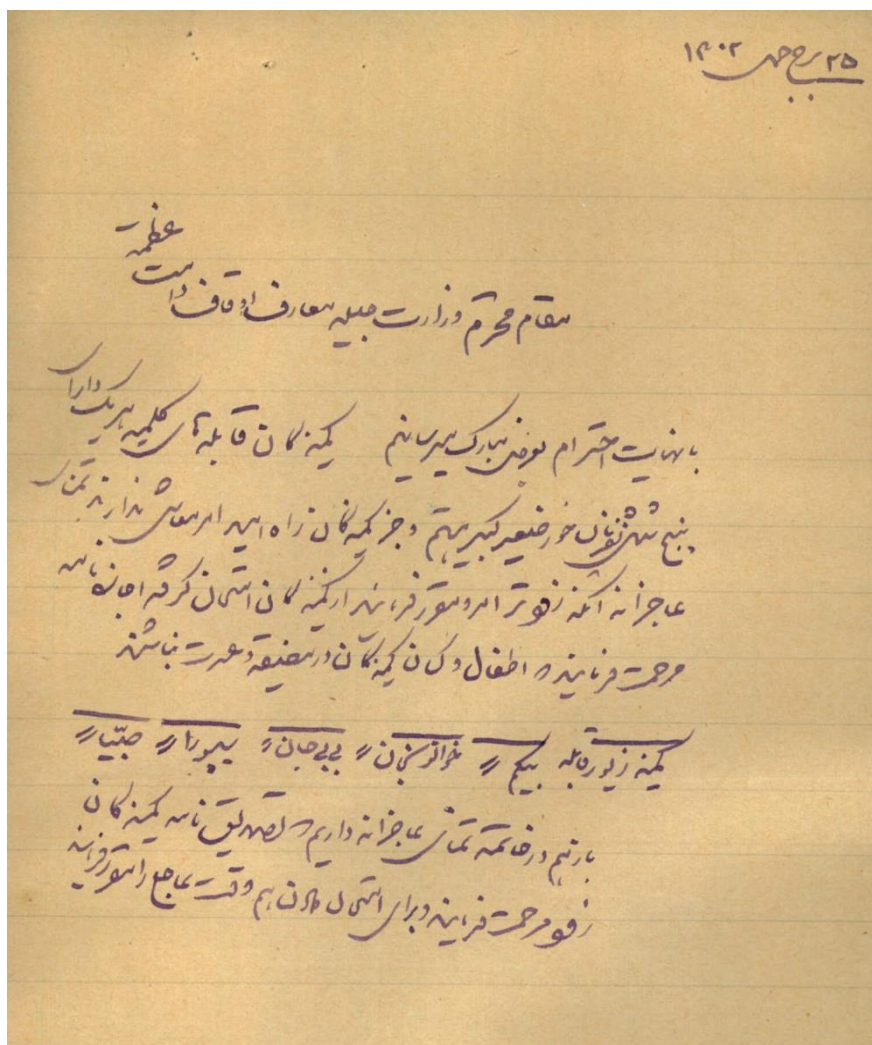 ۲۵ برج جدی ۱۳۰۲
مقام محترم وزارت جلیله معارف اوقاف دامت عظمته
با نهایت احترام بعرض مبارک میرسانیم کمینه گان قابله های کلیمی هر یک دارای
پنج شش نفر نان خور صغیر کبیر هستیم و جز کمینه گان راه امید امر معاش ندارند تمنای
عاجزانه آنکه زودتر امر و مقرر فرمایند از کمینه گان امتحان گرفته اجازه نامه
مرحمت فرمایند که اطفال و کسان کمینه گان در مضیقه و عسرت نباشند
کمینه زیور قابله بیگم 〃 〃 بی بی جان 〃 〃 〃
باز هم در خاتمه تمنای عاجزانه داریم که تصدیق نامه کمینه گان
زودتر مرحمت فرمایند و برای امتحان دادن هم وقت عاجل را مقرر فرمایند